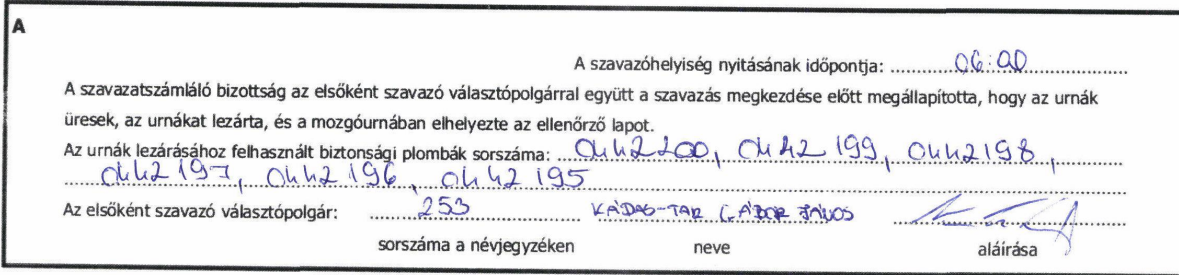 A
A szavazóhelyiség nyitásának időpontja: 06:00
A szavazatszámláló bizottság az elsőként szavazó választópolgárral együtt a szavazás megkezdése előtt megállapította, hogy az urnák
üresek, az urnákat lezárta, és a mozgóurnában elhelyezte az ellenőrző lapot.
Az urnák lezárásához felhasznált biztonsági plombák sorszáma: 0442200, 0442199, 0442198,
0442197, 0442196, 0442195
Az elsőként szavazó választópolgár: 253 GÁBOR JÁNOS
sorszáma a névjegyzéken neve aláírása